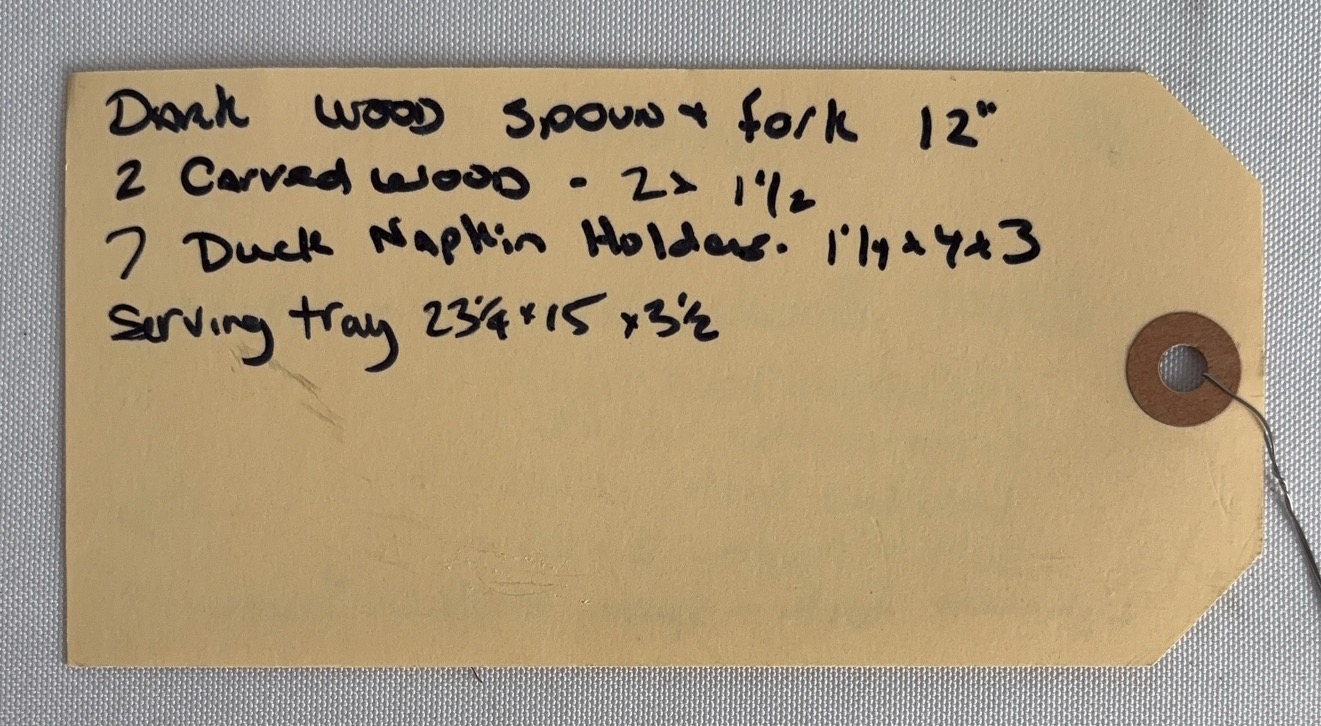 Dark wood spoon + fork 12"
2 Carved wood - 2 x 1 1/2
7 Duck Napkin Holders. 1 1/4 x 4 x 3
Serving tray 23 1/4 x 15 x 3 1/2